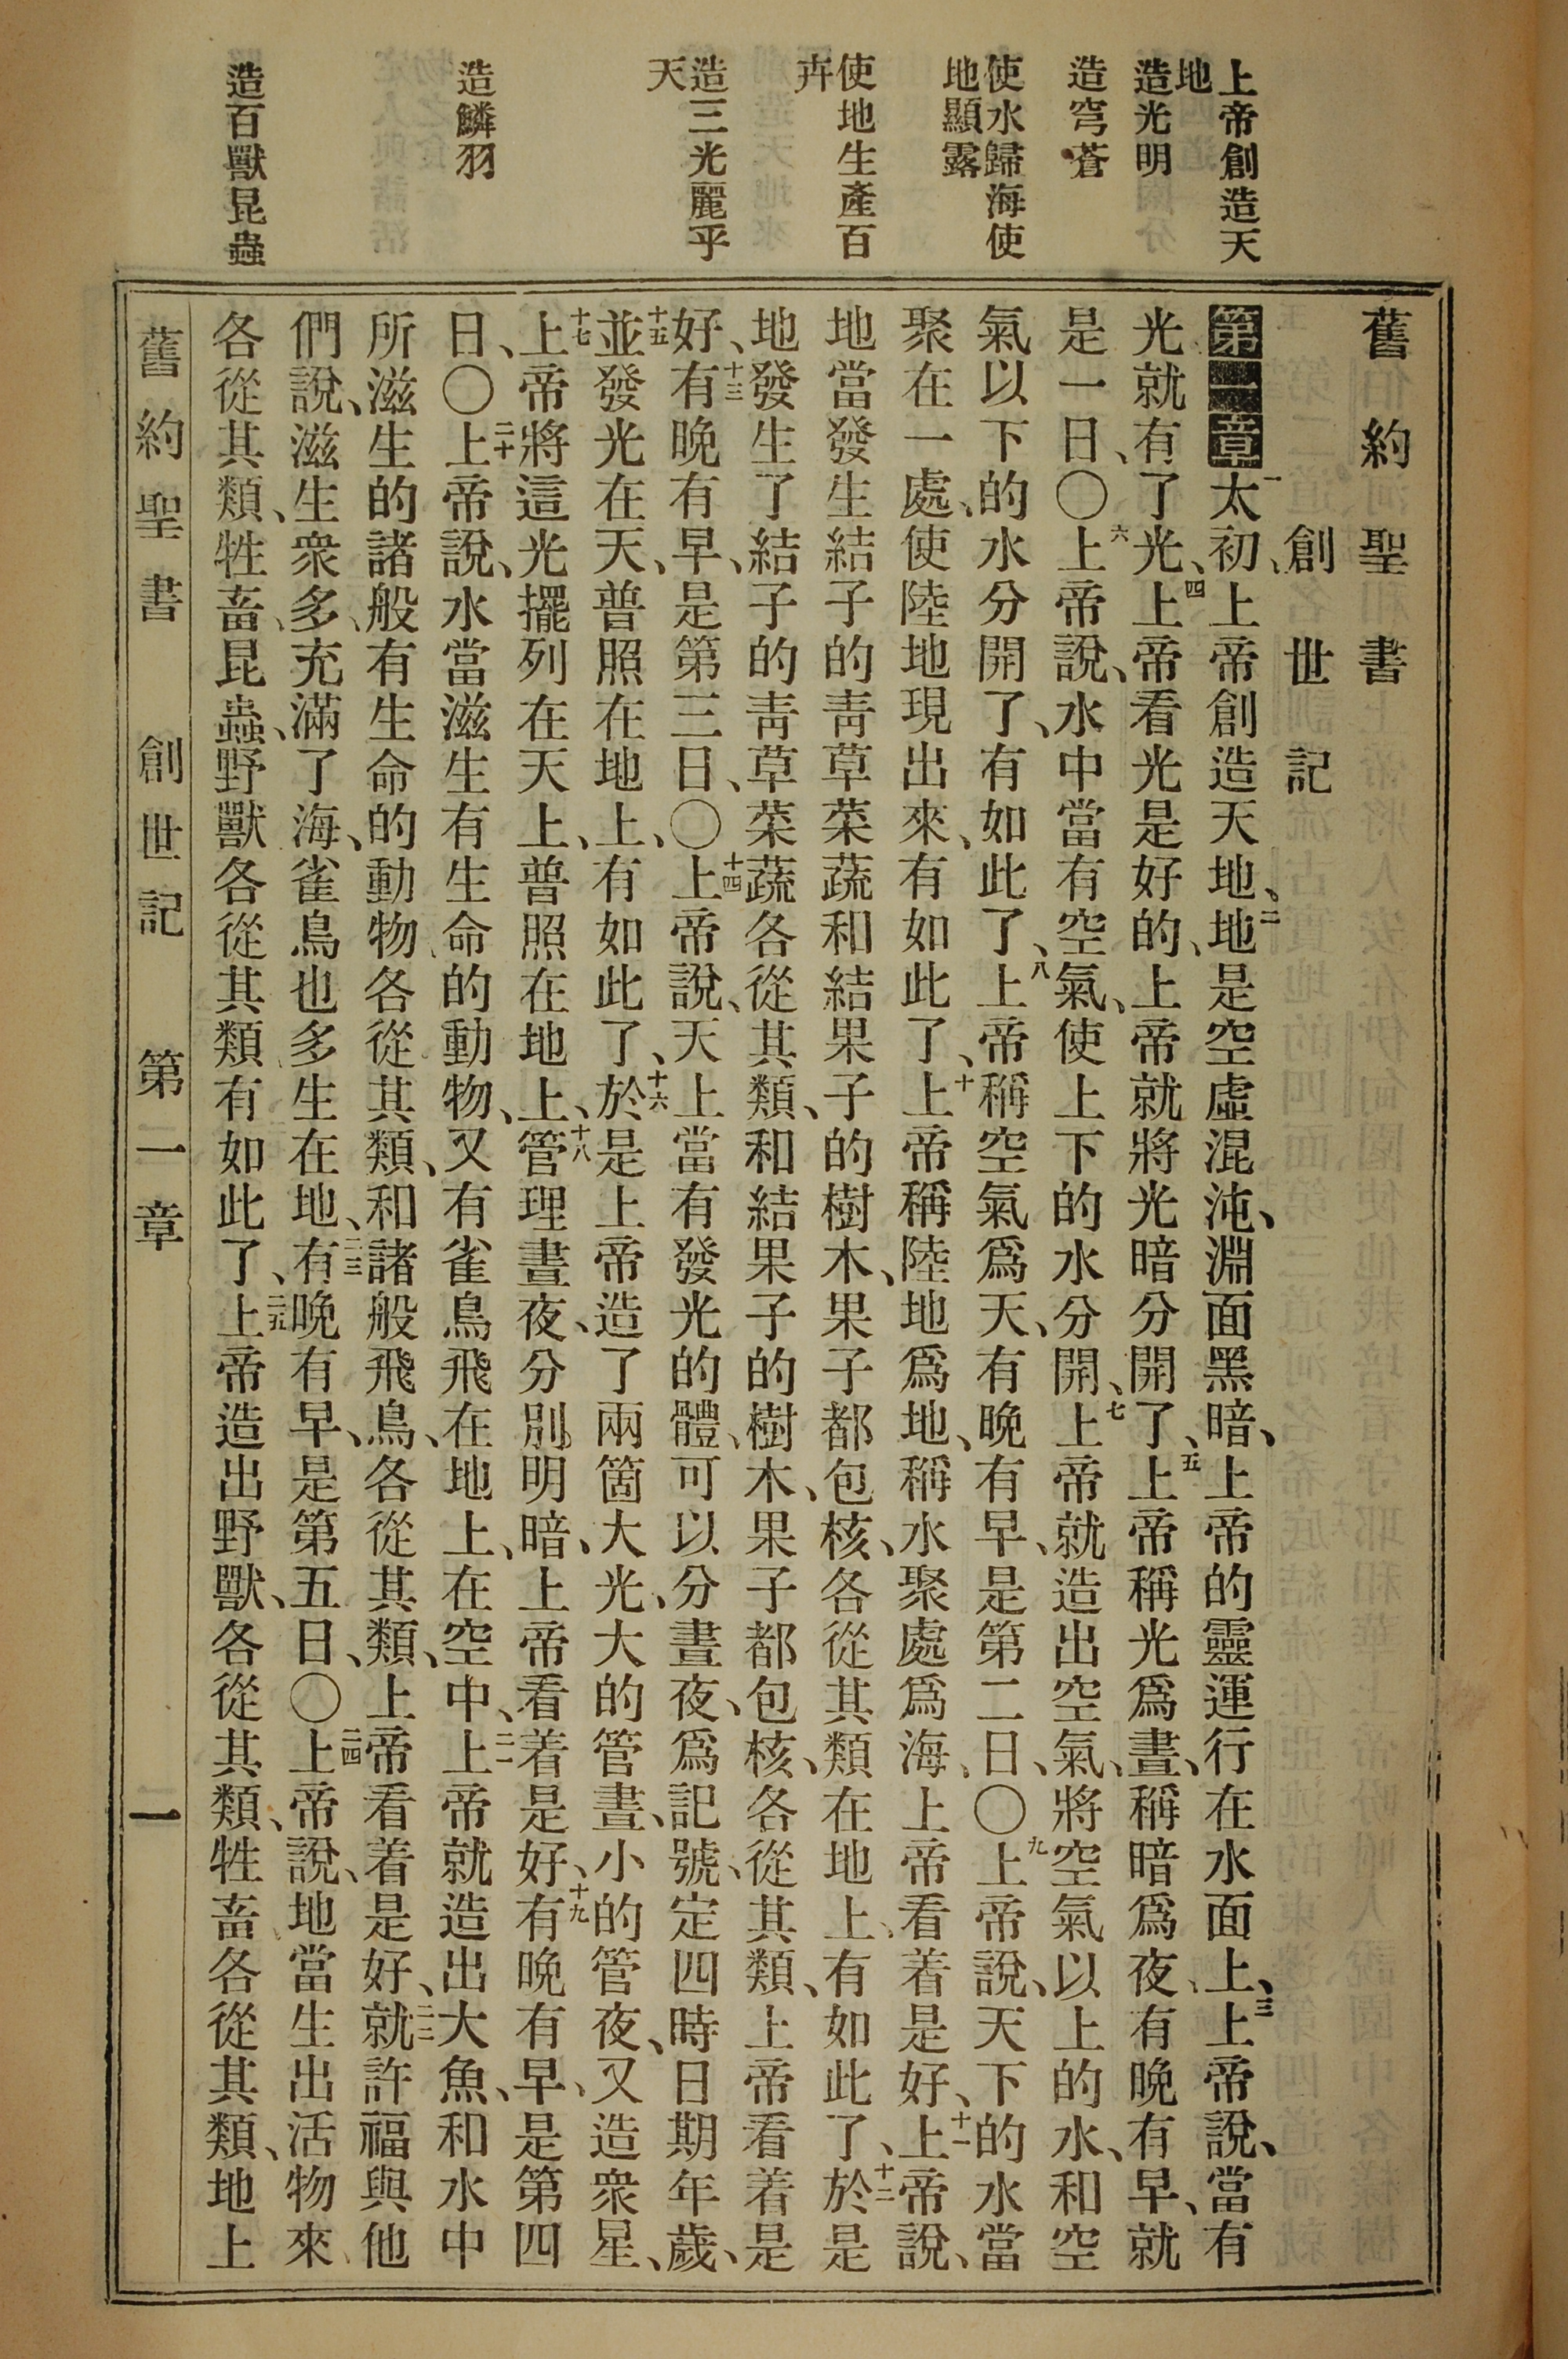 上帝創造天
地
造光明
造穹蒼
使水歸海使
地顯露
使地生產百
卉
造三光麗乎
天
造鱗羽
造百獸昆蟲
舊約聖書
創世記
第一章一太初、上帝創造天地、二地是空虛混沌、淵面黑暗、上帝的靈運行在水面上、三上帝說、當有
光就有了光、四上帝看光是好的、上帝就將光暗分開了、五上帝稱光爲晝、稱暗爲夜、有晚有早、就
是一日、〇六上帝說、水中當有空氣、使上下的水分開、七上帝就造出空氣、將空氣以上的水、和空
氣以下的水分開了、有如此了、八上帝稱空氣爲天、有晚有早、是第二日、〇九上帝說、天下的水當
聚在一處、使陸地現出來、有如此了、十上帝稱陸地爲地、稱水聚處爲海、上帝看着是好、十一上帝說、
地當發生結子的靑草菜蔬和結果子的樹木、果子都包核、各從其類在地上、有如此了、十二於是
地發生了結子的靑草菜蔬各從其類、和結果子的樹木、果子都包核、各從其類、上帝看着是
好、十三有晚有早、是第三日、〇十四上帝說、天上當有發光的體、可以分晝夜、爲記號、定四時日期年歲、
十五並發光在天、普照在地上、有如此了、十六於是上帝造了兩箇大光、大的管晝、小的管夜、又造衆星、
十七上帝將這光擺列在天上、普照在地上、十八管理晝夜、分別明暗、上帝看着是好、十九有晚有早、是第四
日、〇二十上帝說、水當滋生有生命的動物、又有雀鳥飛在地上、在空中、二一上帝就造出大魚、和水中
所滋生的諸般有生命的動物、各從其類、和諸般飛鳥、各從其類、上帝看着是好、二二就許福與他
們說、滋生衆多、充滿了海、雀鳥也多生在地、二三有晚有早、是第五日、〇二四上帝說、地當生出活物來、
各從其類、牲畜、昆蟲、野獸各從其類有如此了、二五上帝造出野獸、各從其類、牲畜各從其類、地上
舊約聖書 創世記 第一章 一